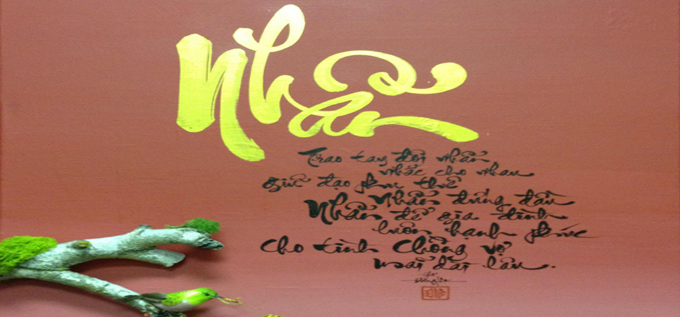 Nhẫn
Trao tay đôi nhẫn
nhắc cho nhau
giữ đạo phu thê
Nhẫn đứng đầu
Nhẫn để gia đình
luôn hạnh phúc
cho tình chồng vợ
mãi dài lâu.